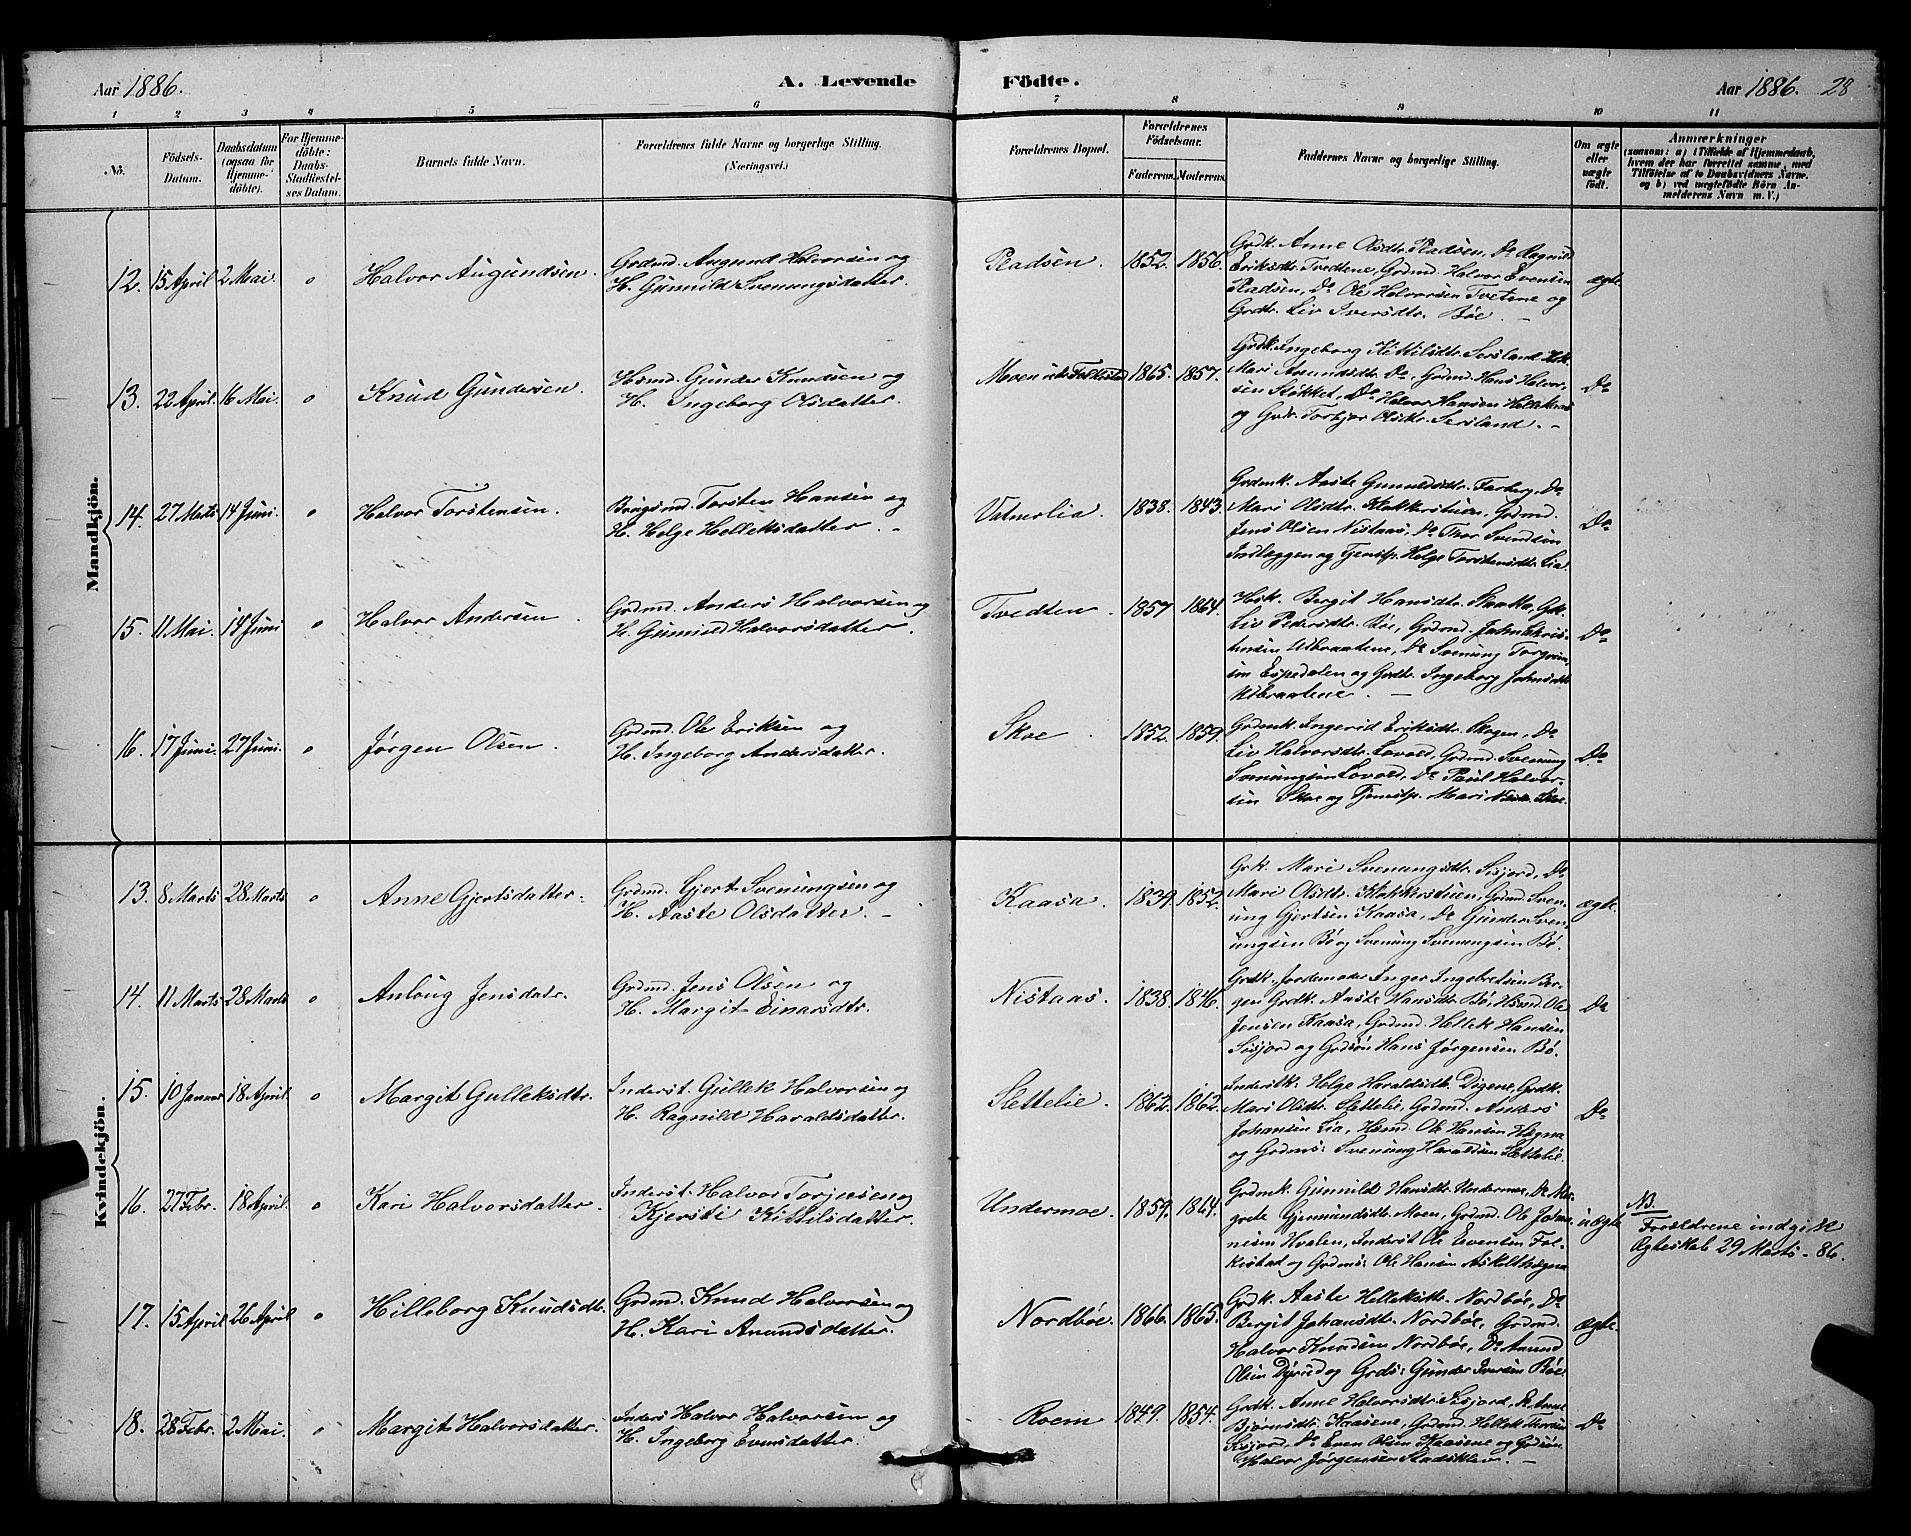 Aar 1886.
A. Levende Födte.
Aar 1886. 28
1 2 3 4 5 6 7 8 9 10 11
No.
Födsels-
Datum.
Daabsdatum
(ogsaa for
Hjemme-
döbte).
For Hjemme-
döbte:
Daabs-
Stadfæstel-
ses Datum.
Barnets fulde Navn.
Forældrenes fulde Navne og borgerlige Stilling.
(Næringsvei.)
Forældrenes Bopæl.
Forældrenes
Födselsaar.
Faderens.
Moderens.
Faddernes Navne og borgerlige Stilling.
Om ægte
eller
uægte
födt.
Anmærkninger
(saasom: a) i Tilfælde af Hjemmedaab,
hvem der har forrettet samme, med
Tilföielse af to Daabsvidners Navne.
og b) ved uægtefödte Börn An-
melderens Navn m. V.)
Mandkjön.
12. 15 April 2 Mai. o Halvor Augundsen.
Grdmd. Augund Halvorsen og
H. Gunnild Svenungsdatter.
Pladsen. 1852. 1856.
Grdk. Anne Olsdtr. Pladsen, Do Ragnild
Eriksdtr. Tvedtene, Grdmd. Halvor Evensen
Pladsen, Do Ole Halvorsen Tvetene og
Grdtr. Liv Iversdtr. Bøe. -
ægte
13. 22 April. 16 Mai. o Knud Gundersen.
Hsmd. Gunder Knudsen og
H. Ingeborg Olsdatter.
Moen 1865. 1857.
Grdk. Ingeborg Kittilsdtr. Sersland
Mari Amundsdtr. Do, Grdmd. Hans Halvor-
sen Stokket, Do Halvor Hansen
og Grdtr. Torbjør Olsdtr. Sersland. -
Do
14. 27 Marts 14 Juni. o Halvor Torstensen.
Brugsmd. Torsten Hansen og
H. Helge Helleksdatter. -
Vatnerlia. 1838. 1843.
Grdmk. Aaste Gunnulsdtr. Farberg, Do
Mari Olsdtr. Klokkerstuen, Grdmd.
Jens Olsen Nistaas, Do Thor Svendsen
Indlæggen og Tjenstp. Helge Torstensdtr. Lia.
Do
15. 11 Mai. 14 Juni o Halvor Andersen.
Grdmd. Anders Halvorsen og
H. Gunnild Halvorsdatter.
Tvedten. 1857 1864.
Hsk. Bergit Hansdtr. Skaatta, Gdk.
Liv Pedersdtr. Bøe, Grdmd. John Chris-
tensen Utbraatene, Do Svenung Torgrim-
sen Espedalen og Grdtr. Ingeborg Johnsdtr.
Utbraatene. -
Do
16. 17 Juni. 27 Juni. o Jørgen Olsen.
Grdmd. Ole Eriksen og
H. Ingeborg Andersdatter.
Skoe 1852. 1859.
Grdmk. Ingerid Eriksdtr. Skogen, Do
Liv Halvorsdtr. Lovold, Grdmd. Svenung
Svenungsen Lovold, Do Paul Halvor-
sen Skoe og Tjenstp. Mari
Do
Kvindekjön.
13. 8 Marts 28 Marts o Anne Gjertsdatter.
Grdmd. Gjert Svenungsen og
H. Aaste Olsdatter. -
Kaasa. 1839. 1852.
Grk. Mari Svenungsdtr. Sisjord, Do
Mari Olsdtr. Klokkerstuen, Grdmd. Sven-
ung Gjertsen Kaasa, Do Gunder Sven-
ungsen Bø og Svenung Svenungsen Bø.
ægte.
14. 11 Marts 28 Marts o Anloug Jensdatr.
Grdmd. Jens Olsen og
H. Margit Einarsdtr.
Nistaas. 1838. 1846.
Grdk. Jordemoder Inger Ingebretsen Ber-
gen Grdk. Aaste Hansdtr. Bø, Hsmd. Ole
Jensen Kaasa, Grdmd. Hellek Hansen
Sisjord og Grdsøn Hans Jørgensen Bø.
Do
15. 10 Januar 18 April. o Margit Gulleksdtr.
Inderst. Gullek Halvorsen og
H. Ragnild Haraldsdatter.
Slettelie. 1862. 1862.
Inderstk. Helge Haraldsdtr. Digene, Grdk.
Mari Olsdtr. Slettelie, Grdmd. Anders
Johansen Lia, Hsmd. Ole Hansen Hægna
og Grdms: Svenung Haraldsen Slettelie.
Do
16. 27 Febr. 18 April. o Kari Halvorsdatter.
Inderst. Halvor Torjusen og
Kjersti Kittilsdatter.
Undermoe. 1859. 1864.
Grdmk. Gunnild Hansdtr. Undermoe, Do Mar-
grete Gjermundsdtr. Moen, Grdmd. Ole Johan-
nesen Hvalen, Inderst Ole Evensen Fol-
kestad og Grdms: Ole Hansen Askilthægna
uægte
NB.
Forældrene indgik
Ægteskab 29 Marts - 86.
17. 15 April 26 April o Hilleborg Knudsdtr.
Grdmd. Knud Halvorsen og
H. Kari Amundsdatter.
Nordbøe. 1866. 1865.
Grdk. Aaste Helleksdtr. Nordbøe, Do
Bergit Johansdtr. Nordbøe, Grdmd.
Halvor Knudsen Nordbøe, Do Amund
Olsen Dyrud og Grds: Gunder Iversen Bøe
ægte.
18. 28 Febr. 2 Mai. o Margit Halvorsdatter.
Inders Halvor Halvorsen og
H. Ingeborg Evensdatter.
Roem 1849. 1854.
Grdk. Anne Halvorsdtr. Sisjord, Do Anne
Bjørnsdtr. Kaasene, Grdmd. Hellek Thorsen
Sisjord, Do Even Olsen Kaasene og Grdsøn
Halvor Jørgensen Stadskleiv. -
Do